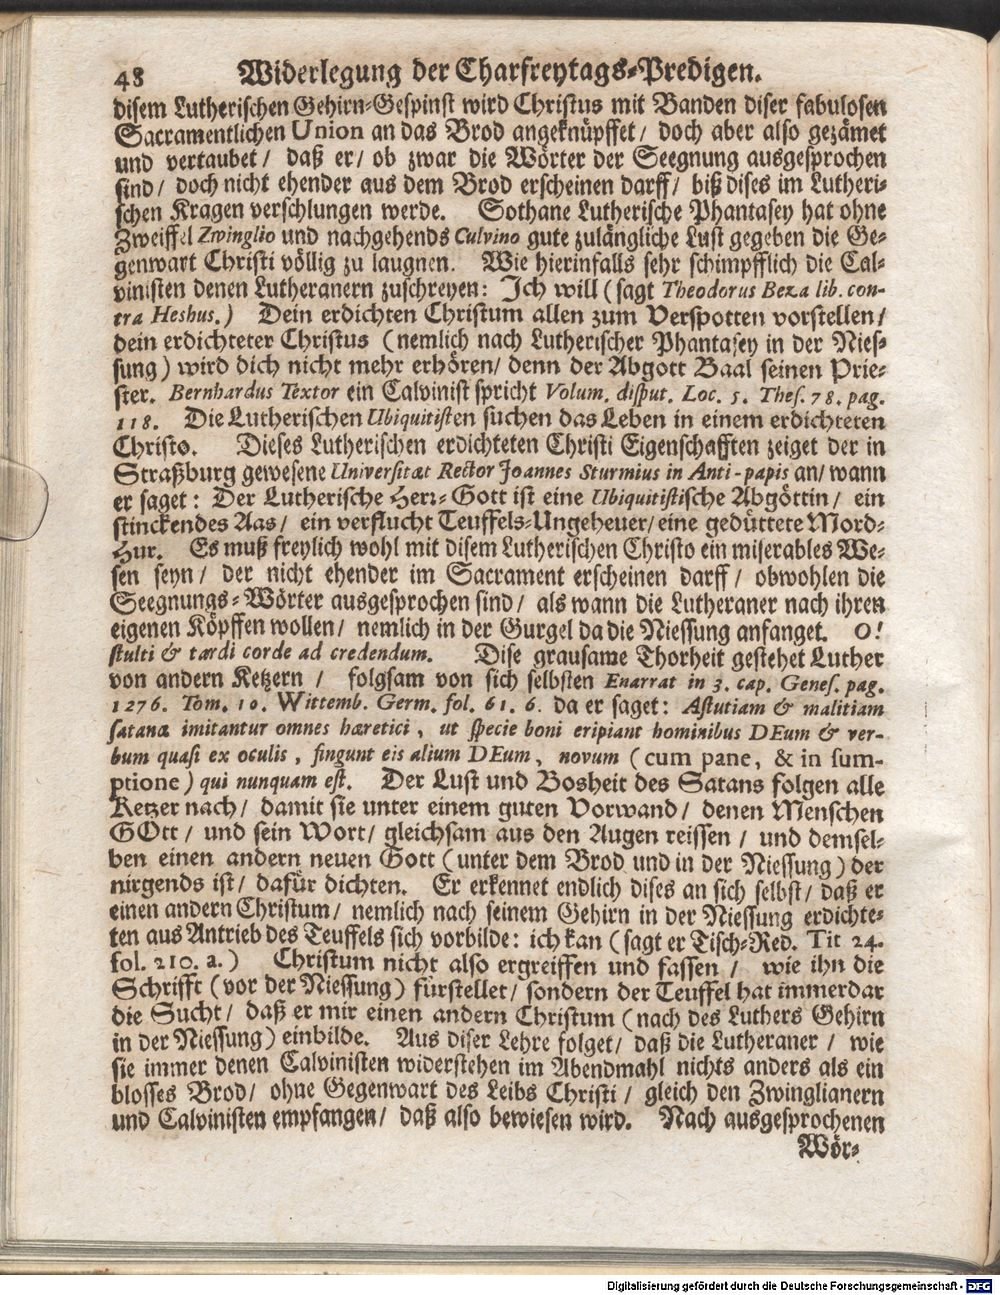 48 Widerlegung der Charfreytags-Predigen.
disem Lutherischen Gehirn-Gespinst wird Christus mit Banden diser fabulosen
Sacramentlichen Union an das Brod angeknüpffet / doch aber also gezämet
und vertaubet / daß er / ob zwar die Wörter der Seegnung ausgesprochen
sind / doch nicht ehender aus dem Brod erscheinen darff / biß dises im Lutheri-
schen Kragen verschlungen werde. Sothane Lutherische Phantasey hat ohne
Zweiffel Zwinglio und nachgehends Culvino gute zulängliche Lust gegeben die Ge-
genwart Christi völlig zu laugnen. Wie hierinfalls sehr schimpfflich die Cal-
vinisten denen Lutheranern zuschreyen: Ich will (sagt Theodorus Beza lib. con-
tra Heshus.) Dein erdichten Christum allen zum Verspotten vorstellen /
dein erdichteter Christus (nemlich nach Lutherischer Phantasey in der Nies-
sung) wird dich nicht mehr erhören / denn der Abgott Baal seinen Prie-
ster. Bernhardus Textor ein Calvinist spricht Volum. disput. Loc. 5. Thes. 78. pag.
118. Die Lutherischen Ubiquitisten suchen das Leben in einem erdichteten
Christo. Dieses Lutherischen erdichteten Christi Eigenschafften zeiget der in
Straßburg gewesene Universitæt Rector Joannes Sturmius in Anti-papis an / wann
er saget: Der Lutherische Herr-Gott ist eine Ubiquitistische Abgöttin / ein
stinckendes Aas / ein verflucht Teuffels-Ungeheuer / eine gedüttete Mord-
Hur. Es muß freylich wohl mit disem Lutherischen Christo ein miserables We-
sen seyn / der nicht ehender im Sacrament erscheinen darff / obwohlen die
Seegnungs-Wörter ausgesprochen sind / als wann die Lutheraner nach ihren
eigenen Köpffen wollen / nemlich in der Gurgel da die Niessung anfanget. O!
stulti & tardi corde ad credendum. Dise grausame Thorheit gestehet Luther
von andern Ketzern / folgsam von sich selbsten Enarrat in 3. cap. Genes. pag.
1276. Tom. 10. Wittemb. Germ. fol. 61. 6. da er saget: Astutiam & malitiam
satanæ imitantur omnes hæretici, ut specie boni eripiant hominibus DEum & ver-
bum quasi ex oculis, fingunt eis alium DEum, novum (cum pane, & in sum-
ptione) qui nunquam est. Der Lust und Bosheit des Satans folgen alle
Ketzer nach / damit sie unter einem guten Vorwand / denen Menschen
GOtt / und sein Wort / gleichsam aus den Augen reissen / und demsel-
ben einen andern neuen Gott (unter dem Brod und in der Niessung) der
nirgends ist / dafür dichten. Er erkennet endlich dises an sich selbst / daß er
einen andern Christum / nemlich nach seinem Gehirn in der Niessung erdichte-
ten aus Antrieb des Teuffels sich vorbilde: ich kan (sagt er Tisch-Red. Tit 24.
fol. 210. a.) Christum nicht also ergreiffen und fassen / wie ihn die
Schrifft (vor der Niessung) fürstellet / sondern der Teuffel hat immerdar
die Sucht / daß er mir einen andern Christum (nach des Luthers Gehirn
in der Niessung) einbilde. Aus diser Lehre folget / daß die Lutheraner / wie
sie immer denen Calvinisten widerstehen im Abendmahl nichts anders als ein
blosses Brod / ohne Gegenwart des Leibs Christi / gleich den Zwinglianern
und Calvinisten empfangen / daß also bewiesen wird. Nach ausgesprochenen
Wör-
Digitalisierung gefördert durch die Deutsche Forschungsgemeinschaft - DFG